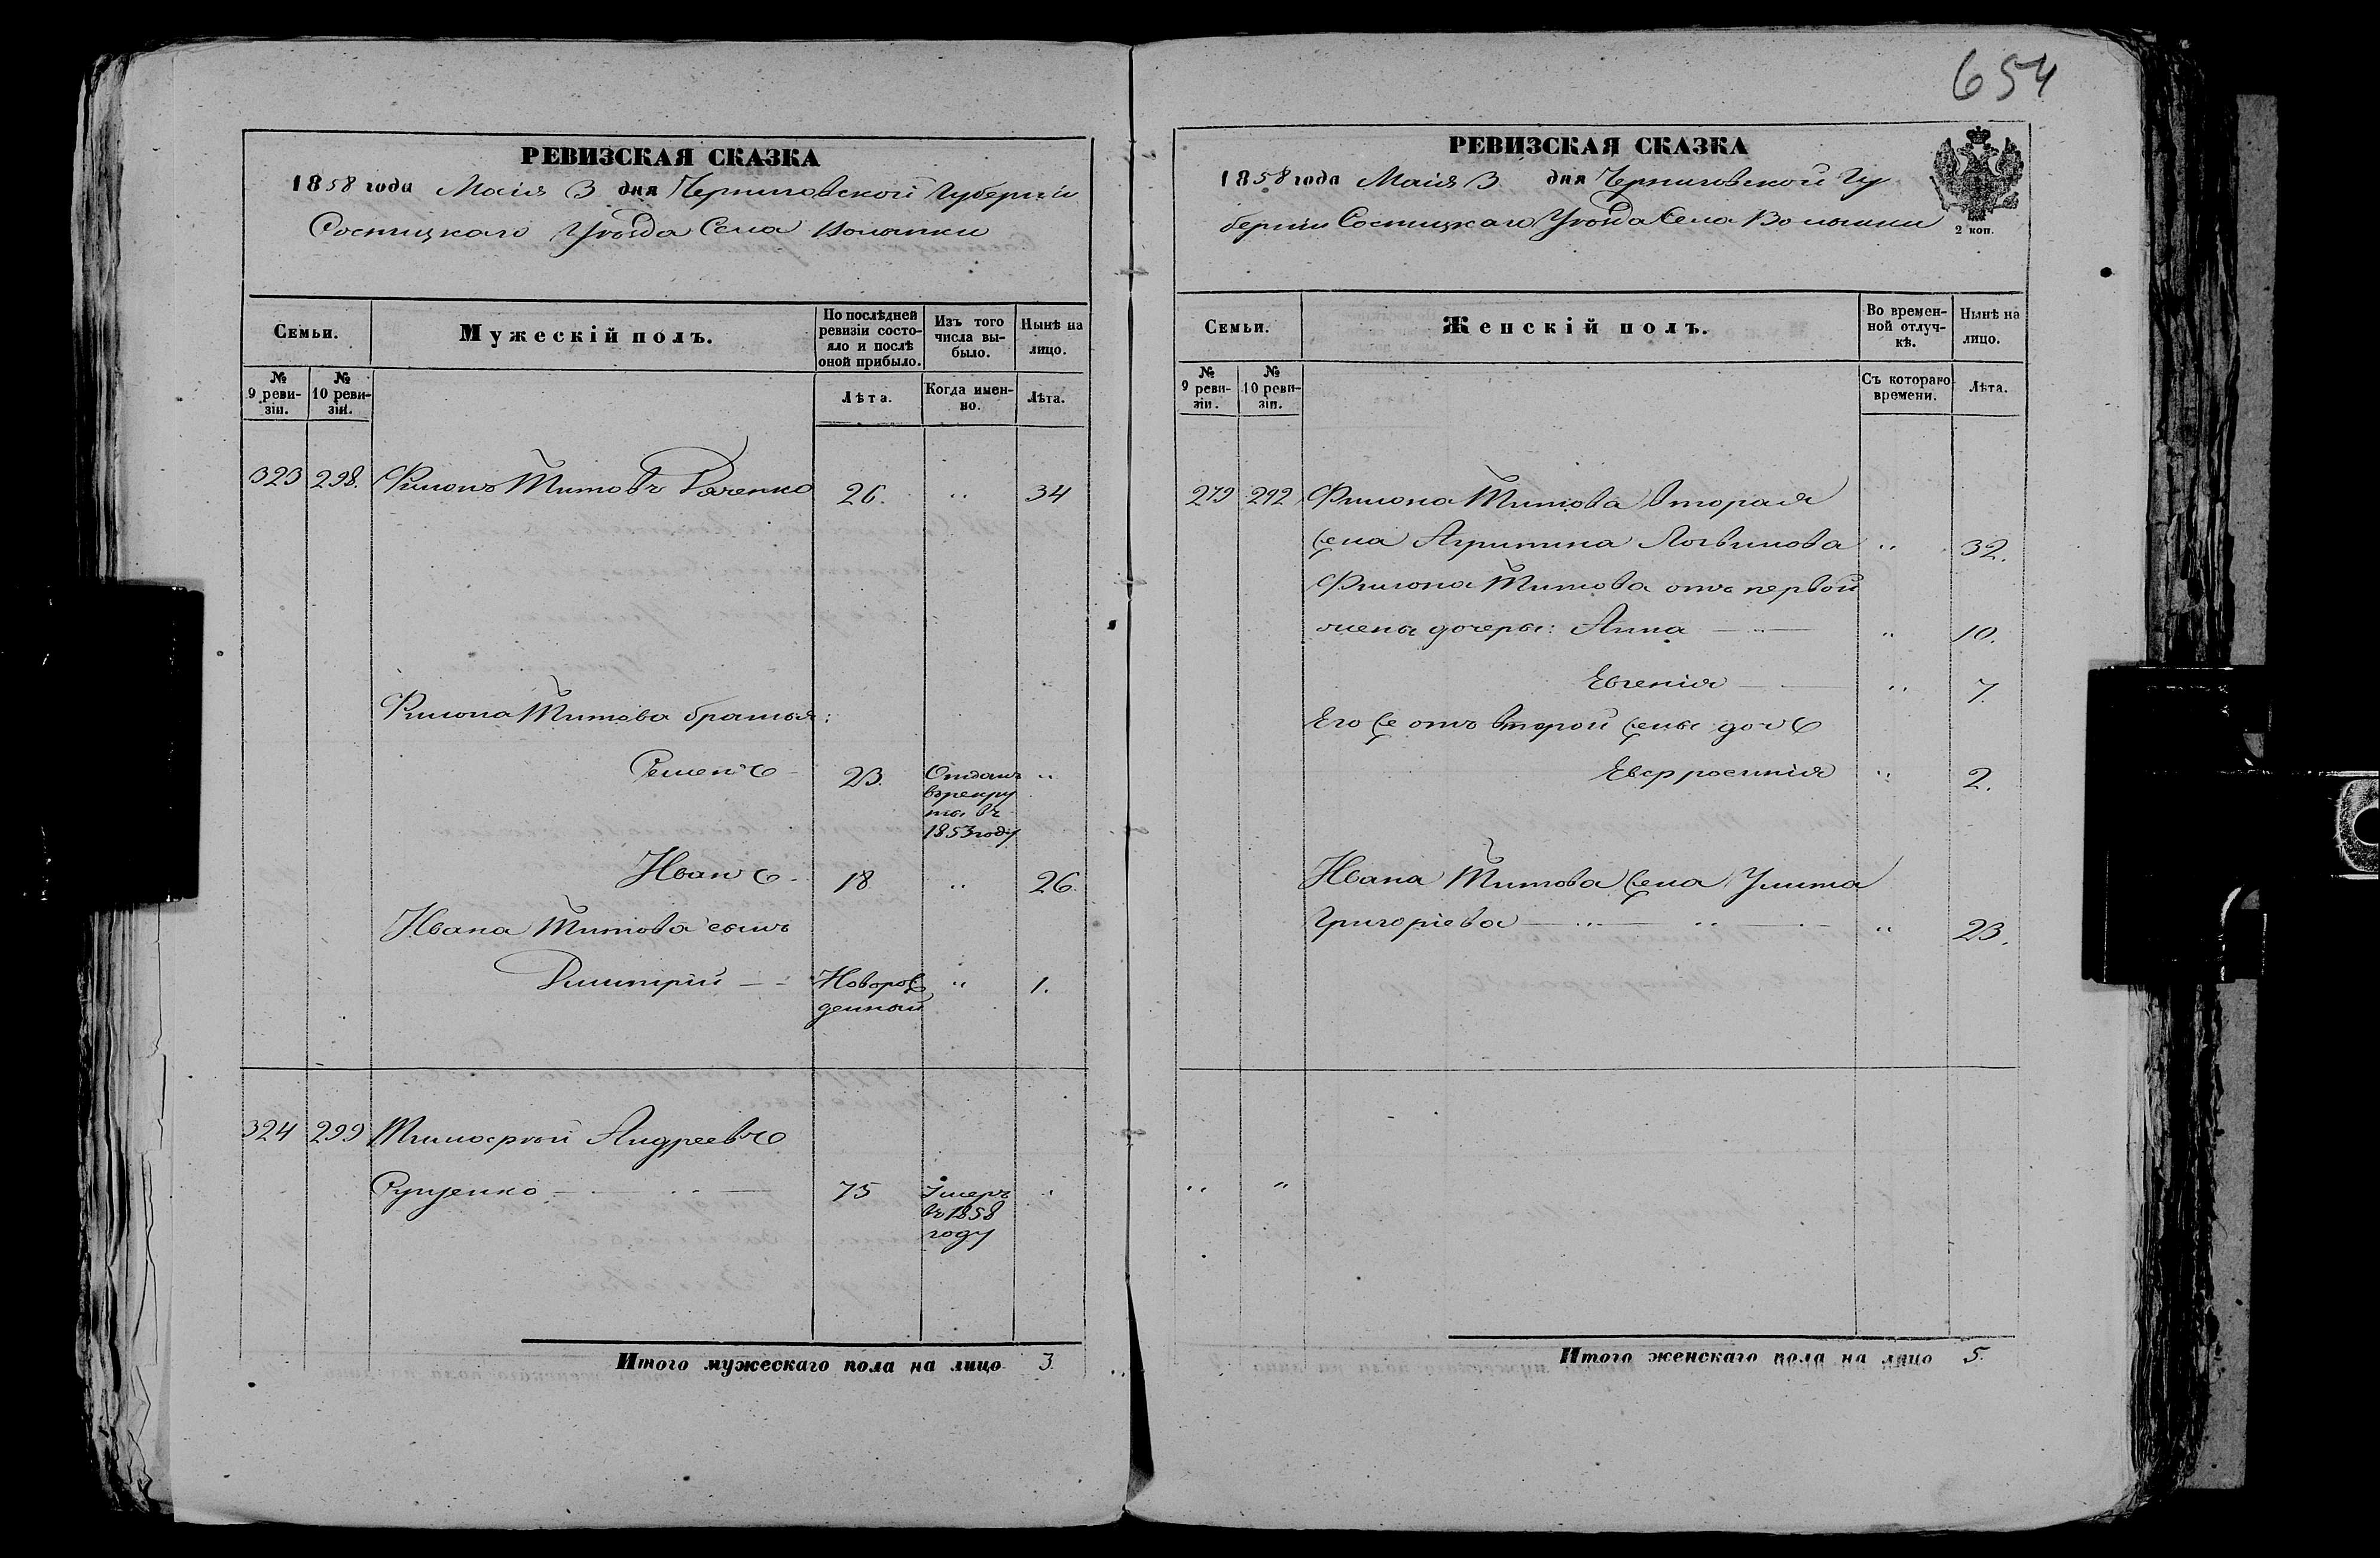 654
РЕВИЗСКАЯ СКАЗКА
1858 года Маія 3 дня Черниговской Губерніи
Сосницкаго Уѣзда Села Волынки
Семьи.
Мужескій полъ.
По послѣдней
ревизіи состо-
яло и послѣ
оной прибыло.
Изъ того
числа вы-
было.
Нынѣ на
лицо.
№
9 реви-
зіи.
№
10 реви-
зіи.
Лѣта.
Когда имен-
но.
Лѣта.
323 298. Филонъ Титовъ 26. " 34
Филона Титова братья:
Семенъ 23. Отданъ "
въ рекру
ты въ
1853 году
Иванъ 18 " 26.
Ивана Титова сынъ
Димитрій Новорож "  1.
денный
324 299 Тимофѣй Андреевъ
Руденко 75 Умеръ "
въ 1858
году
Итого мужескаго пола на лицо 3.
РЕВИЗСКАЯ СКАЗКА
1858 года Маія 3 дня Черниговской Гу
берніи Сосницкаго Уѣзда Села Волынки
2 коп.
Семьи.
Женскій полъ.
Во времен-
ной отлуч-
кѣ.
Нынѣ на
лицо.
№
9 реви-
зіи.
№
10 реви-
зіи.
Съ котораго
времени.
Лѣта.
279 292 Филона Титова вторая
жена Агрипина Логвинова " 32.
Филона Титова отъ первой
жены дочеры: Анна " 10.
Евгенія " 7.
Его же отъ второй жены дочь
Евфросинія " 2.
Ивана Титова жена Улита
Григоріева " 23.
" "
Итого женскаго пола на лицо 5.